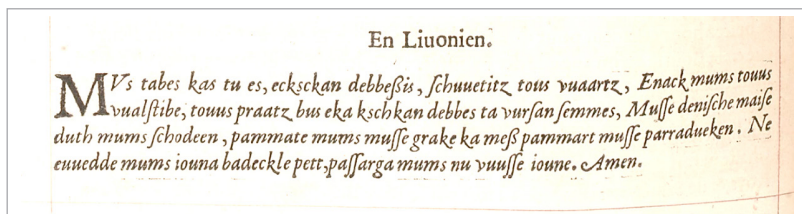 En Liuonien.
MVs tabes kas tu es, ecksckan debbeßis, ſchuuetitz tous vuaartz, Enack mums touus
vualſtibe, touus praatz bus eka kschkan debbes ta vurſan ſemmes, Muſſe deniſche maiſe
duth mums ſchodeen, pammate mums muſſe grake ka meß pammart muſſe parradueken. Ne
euuedde mums iouna badeckle pett, paſſarga mums nu vuuſſe ioune. Amen.